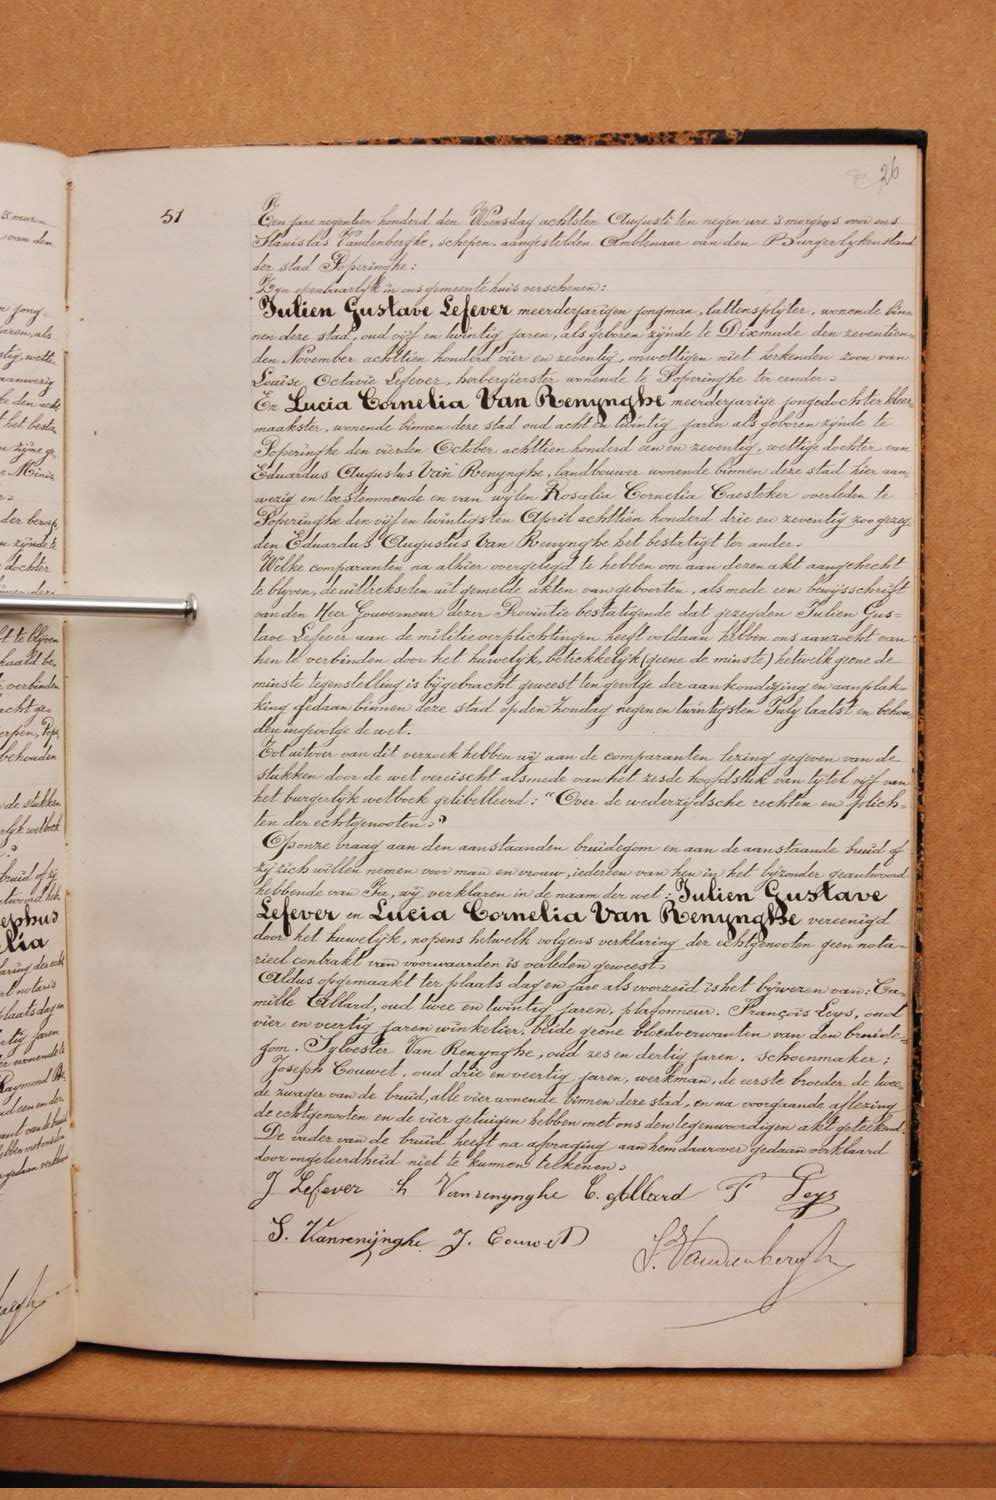 26
51
Een jare negentien honderd den Woensdag achtsten Augusti ten negen ure 's morgens voor ons
Stanislas Vandenberghe, schepen, aangestelden Ambtenaar van den Burgerlykenstand
der stad Poperinghe:
Zyn openbaarlyk in ons gemeente huis verschenen:
Julien Gustave Lefever meerderjarigen jongman, lattensplyter, wonende bin=
nen deze stad, oud vijf en twintig jaren, als geboren zijnde te Dixmude den zeventien=
den November achttien honderd vier en zeventig, onwettigen niet herkenden zoon van
Louise Octavie Lefever, herbergierster wonende te Poperinghe ter eender.
En Lucia Cornelia Van Renynghe meerderjarige jongedochter kleer=
maakster, wonende binnen deze stad oud acht en twintig jaren als geboren zijnde te
Poperinghe den vierden October achttien honderd een en zeventig, wettige dochter van
Eduardus Augustus Van Renynghe, landbouwer wonende binnen deze stad hier aan=
wezig en toestemmende en van wijlen Rosalia Cornelia Caesteker overleden te
Poperinghe den vijf en twintigsten April achttien honderd drie en zeventig zoo gezeg=
den Eduardus Augustus Van Renynghe het bestatigt ter ander.
Welke comparanten na alhier overgelegd te hebben om aan dezen akt aangehecht
te blyven, de uittrekselen uit gemelde akten van geboorten, als mede een bewijsschrift
van den Heer Gouverneur dezer Provintie bestatigende dat gezegden Julien Gus=
tave Lefever aan de militieverplichtingen heeft voldaan hebben ons aanzocht van
hen te verbinden door het huwelijk, betrekkelijk (geene de minste) hetwelk geene de
minste tegenstelling is bijgebracht geweest ten gevolge der aankondiging en aanplak=
king gedaan binnen deze stad op den Zondag negen en twintigsten July laatst en behou=
den ingevolge de wet.
Tot uitvoer van dit verzoek hebben wij aan de comparanten lezing gegeven van de
stukken door de wet vereischt alsmede van het zesde hoofdstuk van tytel vijf van
het burgerlijk wetboek getibelleerd: "Over de wederzydsche rechten en plich=
ten der echtgenooten."
Op onze vraag aan den aanstaanden bruidegom en aan de aanstaande bruid of
zij zich willen nemen voor man en vrouw, iedereen van hen in het byzonder geantwoord
hebbende van Ja, wij verklaren in de naam der wet: Julien Gustave
Lefever en Lucia Cornelia Van Renynghe vereenigd
door het huwelijk, nopens hetwelk volgens verklaring der echtgenooten geen nota=
rieel contrakt van voorwaarden is verleden geweest.
Aldus opgemaakt ter plaats dag en jare als voorzeid is het bijwezen van: Ca=
mille Allard, oud twee en twintig jaren, plafonneur. François Leys, oud
vier en veertig jaren winkelier, beide geene bloedverwanten van den bruide=
gom. Sylvester Van Renynghe, oud zes en dertig jaren, schoenmaker;
Joseph Couwet, oud drie en veertig jaren, werkman, de eerste broeder de twee=
de zwager van de bruid, alle vier wonende binnen deze stad, en na voorgaande aflezing
de echtgenooten en de vier getuigen hebben met ons den tegenwoordigen akt geteekend.
De vader van de bruid heeft na afvraging aan hem daarover gedaan verklaard
door ongeleerdheid niet te kunnen teekenen.
J Lefever L Vanrenynghe C. Allard F Leys
S. Vanrenijnghe J. Couwet S. Vandenberghe